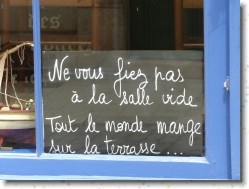 Ne vous fiez pas
à la salle vide
Tout le monde mange
sur la terrasse...